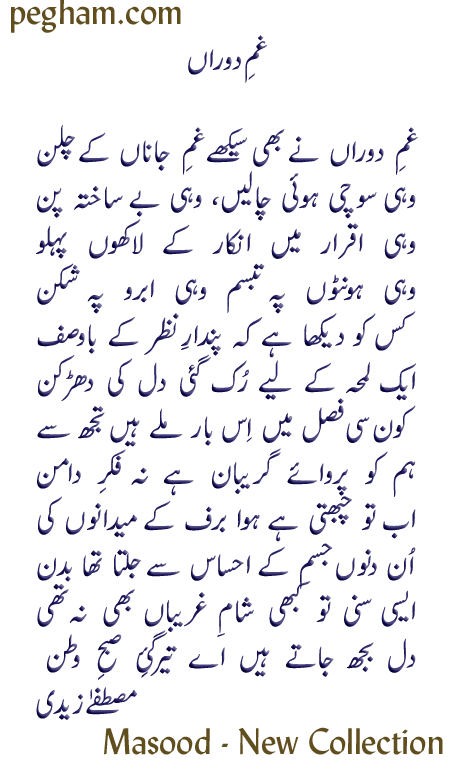 pegham.com
غمِ دوراں
غمِ دوراں نے بھی سیکھے غمِ جاناں کے چلن
وہی سوچی ہوئی چالیں، وہی بے ساختہ پن
وہی اقرار میں انکار کے لاکھوں پہلو
وہی ہونٹوں پہ تبسم وہی ابرو پہ شکن
کس کو دیکھا ہے کہ پندارِ نظر کے باوصف
ایک لمحہ کے لیے رُک گئی دل کی دھڑکن
کون سی فصل میں اِس بار ملے ہیں تجھ سے
ہم کو پروائے گریبان ہے نہ فکرِ دامن
اب تو چُبھتی ہے ہوا برف کے میدانوں کی
اُن دنوں جسم کے احساس سے جلتا تھا بدن
ایسی سنی تو کبھی شامِ غریباں بھی نہ تھی
دل بجھ جاتے ہیں اے تیرگئِ صبحِ وطن
مصطفےٰ زیدی
Masood - New Collection